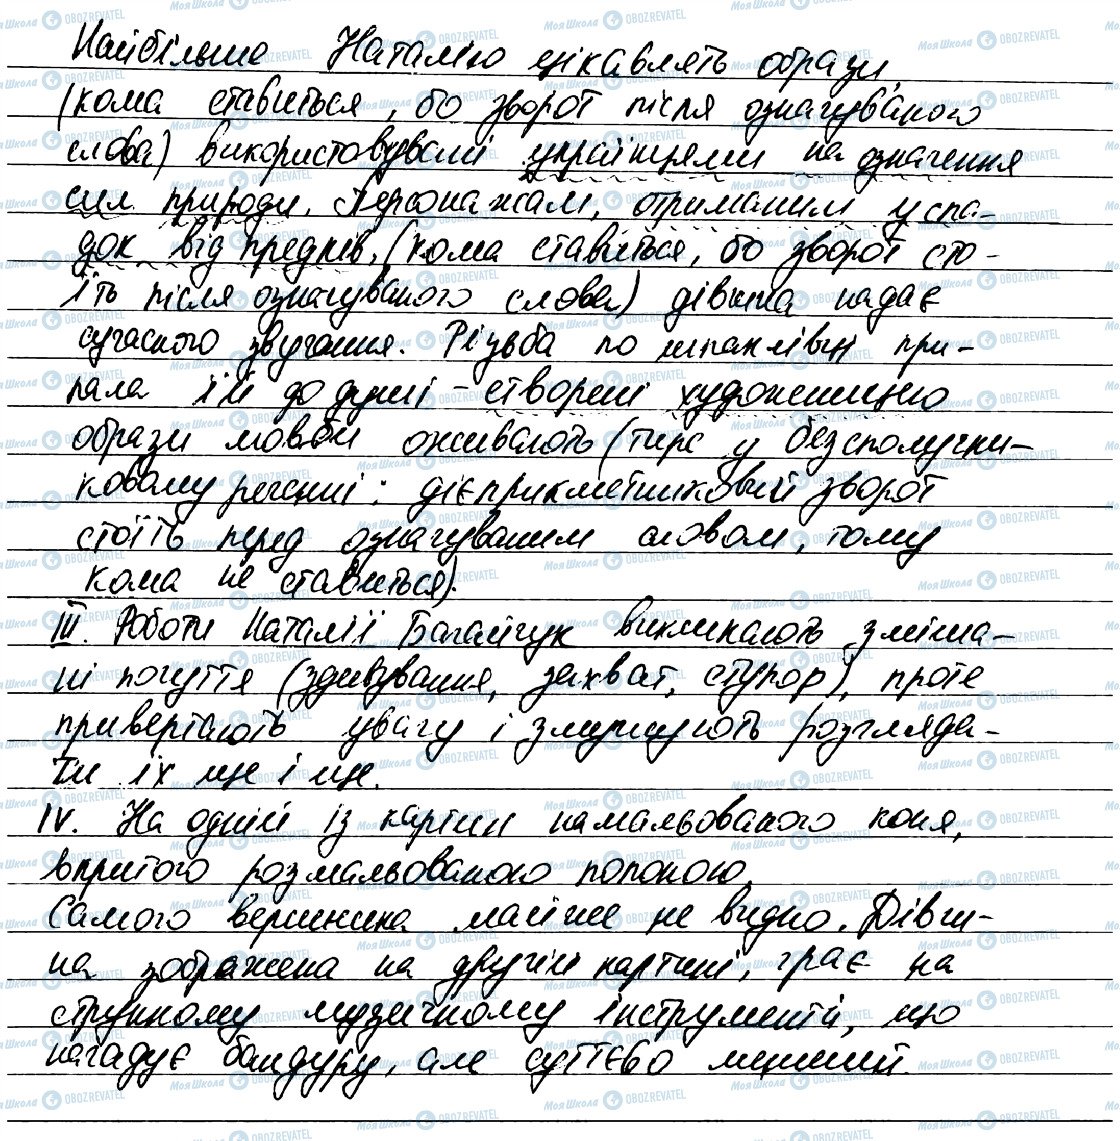 Найбільше Наталію цікавлять образи,
(кома ставиться, бо зворот після означуваного
слова) використовувані українцями на означення
сил природи. Персонажам, отриманим у спа-
док від предків, (кома ставиться, бо зворот сто-
їть після означуваного слова) дівчина надає
сучасного звучання. Різьба по шпаклівці при-
пала їй до душі – створені художницею
образи мовби оживають (тире у безсполучни-
ковому реченні; дієприкметниковий зворот
стоїть перед означуваним словом, тому
кома не ставиться).
III. Роботи Наталії Багайчук викликають зміша-
ні почуття (здивування, захват, ступор), проте
привертають увагу і змушують розгляда-
ти їх ще і ще.
IV. На одній із картин намальованого коня,
вкритого розмальованою попоною.
Самого вершника майже не видно. Дівчи-
на зображена на другій картині, грає на
струнному музичному інструменті, що
нагадує бандуру, але суттєво менший.